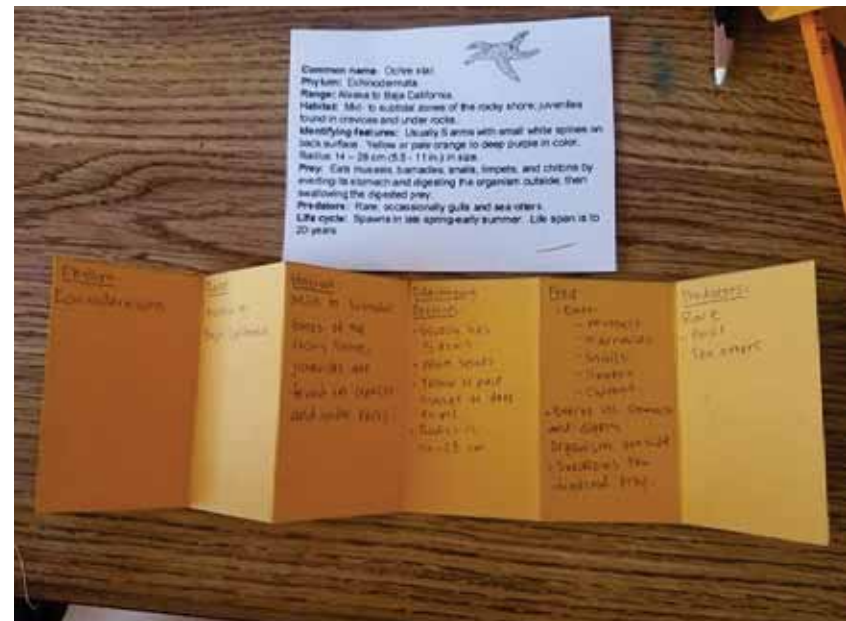 Common name: Ochre star
Phylum: Echinodermata
Range: Alaska to Baja California.
Habitat: Mid- to subtidal zones of the rocky shore; juveniles
found in crevices and under rocks.
Identifying features: Usually 5 arms with small white spines on
back surface. Yellow or pale orange to deep purple in color.
Radius 14 – 28 cm (5.5 - 11 in.) in size.
Prey: Eats mussels, barnacles, snails, limpets, and chitons by
everting its stomach and digesting the organism outside, then
swallowing the digested prey.
Predators: Rare, occasionally gulls and sea otters.
Life cycle: Spawns in late spring-early summer. Life span is to
20 years
Phylum
Echinodermata
Alaska to
Baja California
Habitat
Mid- to subtidal
zones of the
rocky shore,
juveniles are
found in
and under rocks.
Identifying
Features
5 arms
Yellow or pale
orange or deep
Radius is
Prey
- Mussels
- Barnacles
- Snails
Everts its stomach
and digests
organism outside
Swallows the
digested prey.
Predators:
Rare
Sea otters